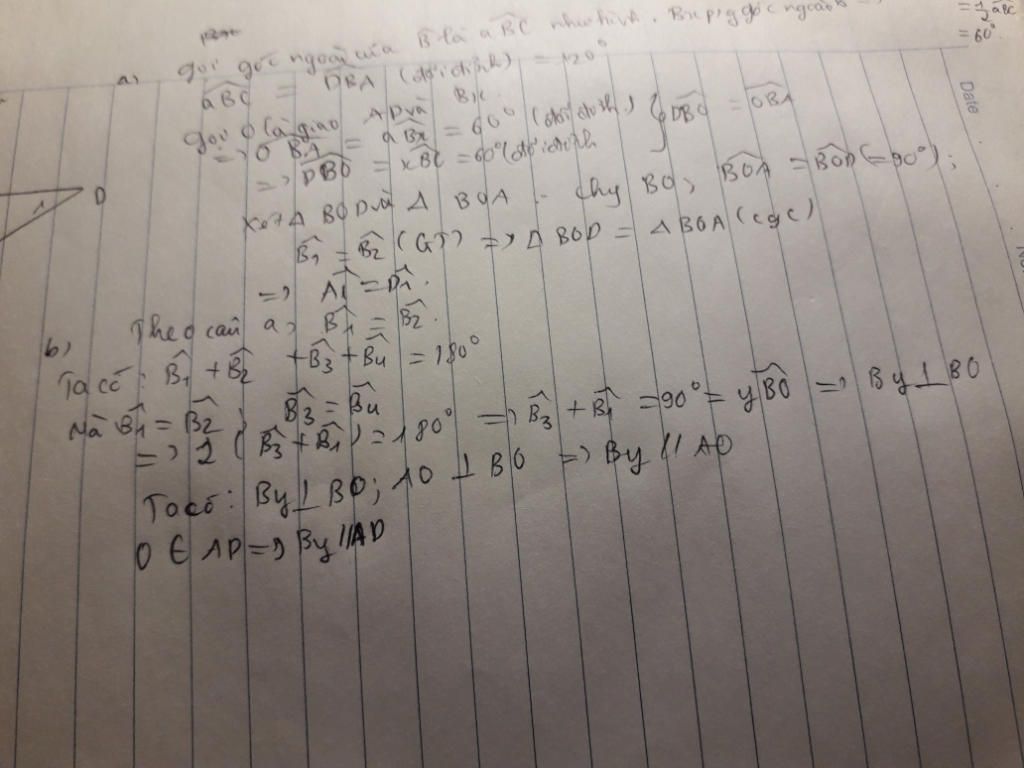 a) gọi góc ngoài của B là aBC như hình. Bx p/g góc ngoài
= 1/2 aBC
= 60°.
aBC = DBA (đối đỉnh) = 120°
Date
gọi O là giao AD và Bx
=> OBA = aBx = 60° (đối đỉnh) } DBO = OBA
=> DBO = xBC = 60° (đối đỉnh
Xét Δ BOD và Δ BOA : chg BO; BOA = BOD (=90°);
B̂1 = B̂2 (GT) => Δ BOD = Δ BOA (cgc)
=> Â1 = D̂1.
1 D
b) Theo câu a, B̂1 = B̂2.
Ta có: B̂1 + B̂2 + B̂3 + B̂4 = 180°
Mà B̂1 = B̂2; B̂3 = B̂4
=> 2 (B̂3 + B̂1) = 180° => B̂3 + B̂1 = 90° = yBO => By ⊥ BO
Ta có: By ⊥ BO; AO ⊥ BO => By // AO
O ∈ AD => By // AD